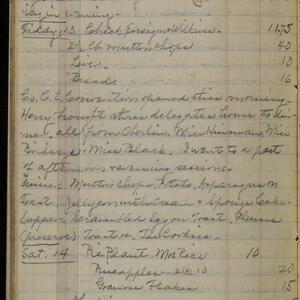 day in evening.
Friday, 13. Check Foreign & Wilkins. 11.75
2 ½ lb. Mutton Chops 40
Liver 10
Bread 16
Co. C. E. Convention opened this morning.
Henry brought three delegates home to din-
ner, all from Oberlin, Miss Hinman, Miss
& Miss Black. I went to a part
of afternoon & evening sessions.
Dinner Mutton Chops, Potato, Asparagus on
Toast, Jelly, with Cream & Sponge Cake.
Supper, Scrambled Egg on Toast, Plums
(preserve) Toast & Tea Cookies.
Sat. 14 Pie Plant. Mrs 10
Pineapples 2 @ 10 20
Flakes 15